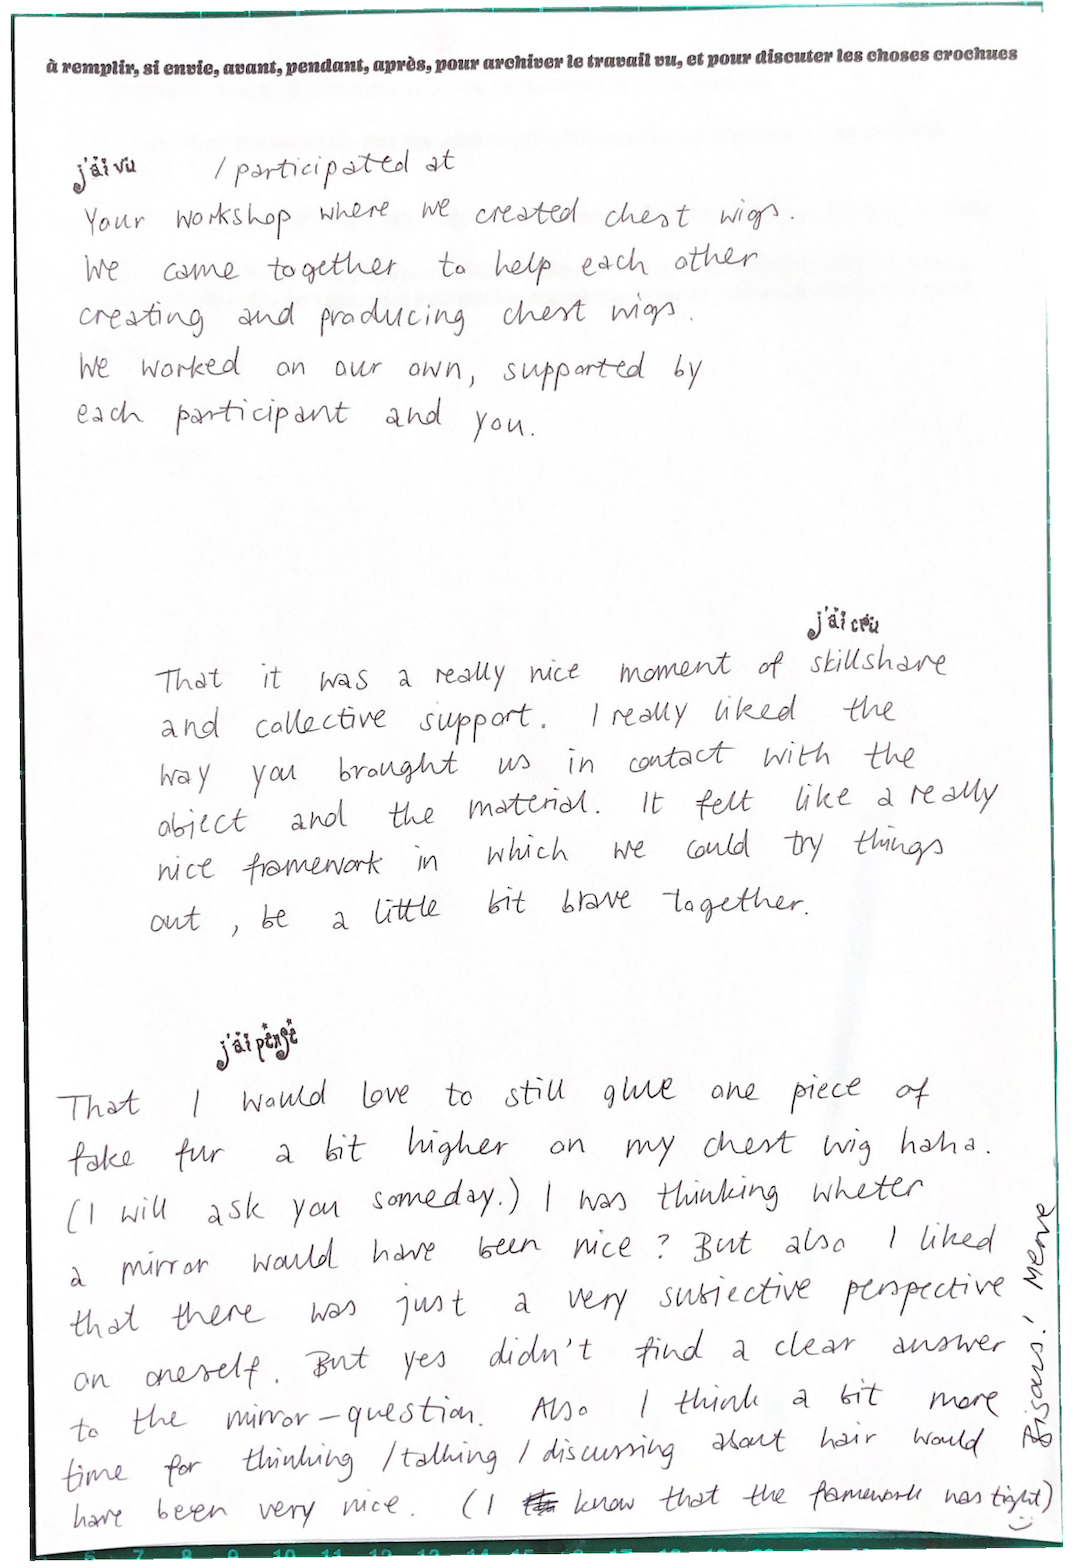 à remplir, si envie, avant, pendant, après, pour archiver le travail vu, et pour discuter les choses crochues
j'ai vu I participated at
Your workshop where we created chest wigs.
We came together to help each other
creating and producing chest wigs.
We worked on our own, supported by
each participant and you.
j'ai cru
That it was a really nice moment of skillshare
and collective support. I really liked the
way you brought us in contact with the
object and the material. It felt like a really
nice framework in which we could try things
out, be a little bit brave together.
j'ai pensé
That I would love to still glue one piece of
fake fur a bit higher on my chest wig haha.
(I will ask you someday.) I was thinking wheter
a mirror would have been nice? But also I liked
that there was just a very subjective perspective
on oneself. But yes didn't find a clear answer
to the mirror-question. Also I think a bit more
time for thinking / talking / discussing about hair would
have been very nice. (I know that the famework was tight)
:)
Bisous! Merve
6 7 8 9 10 11 12 13 14 15